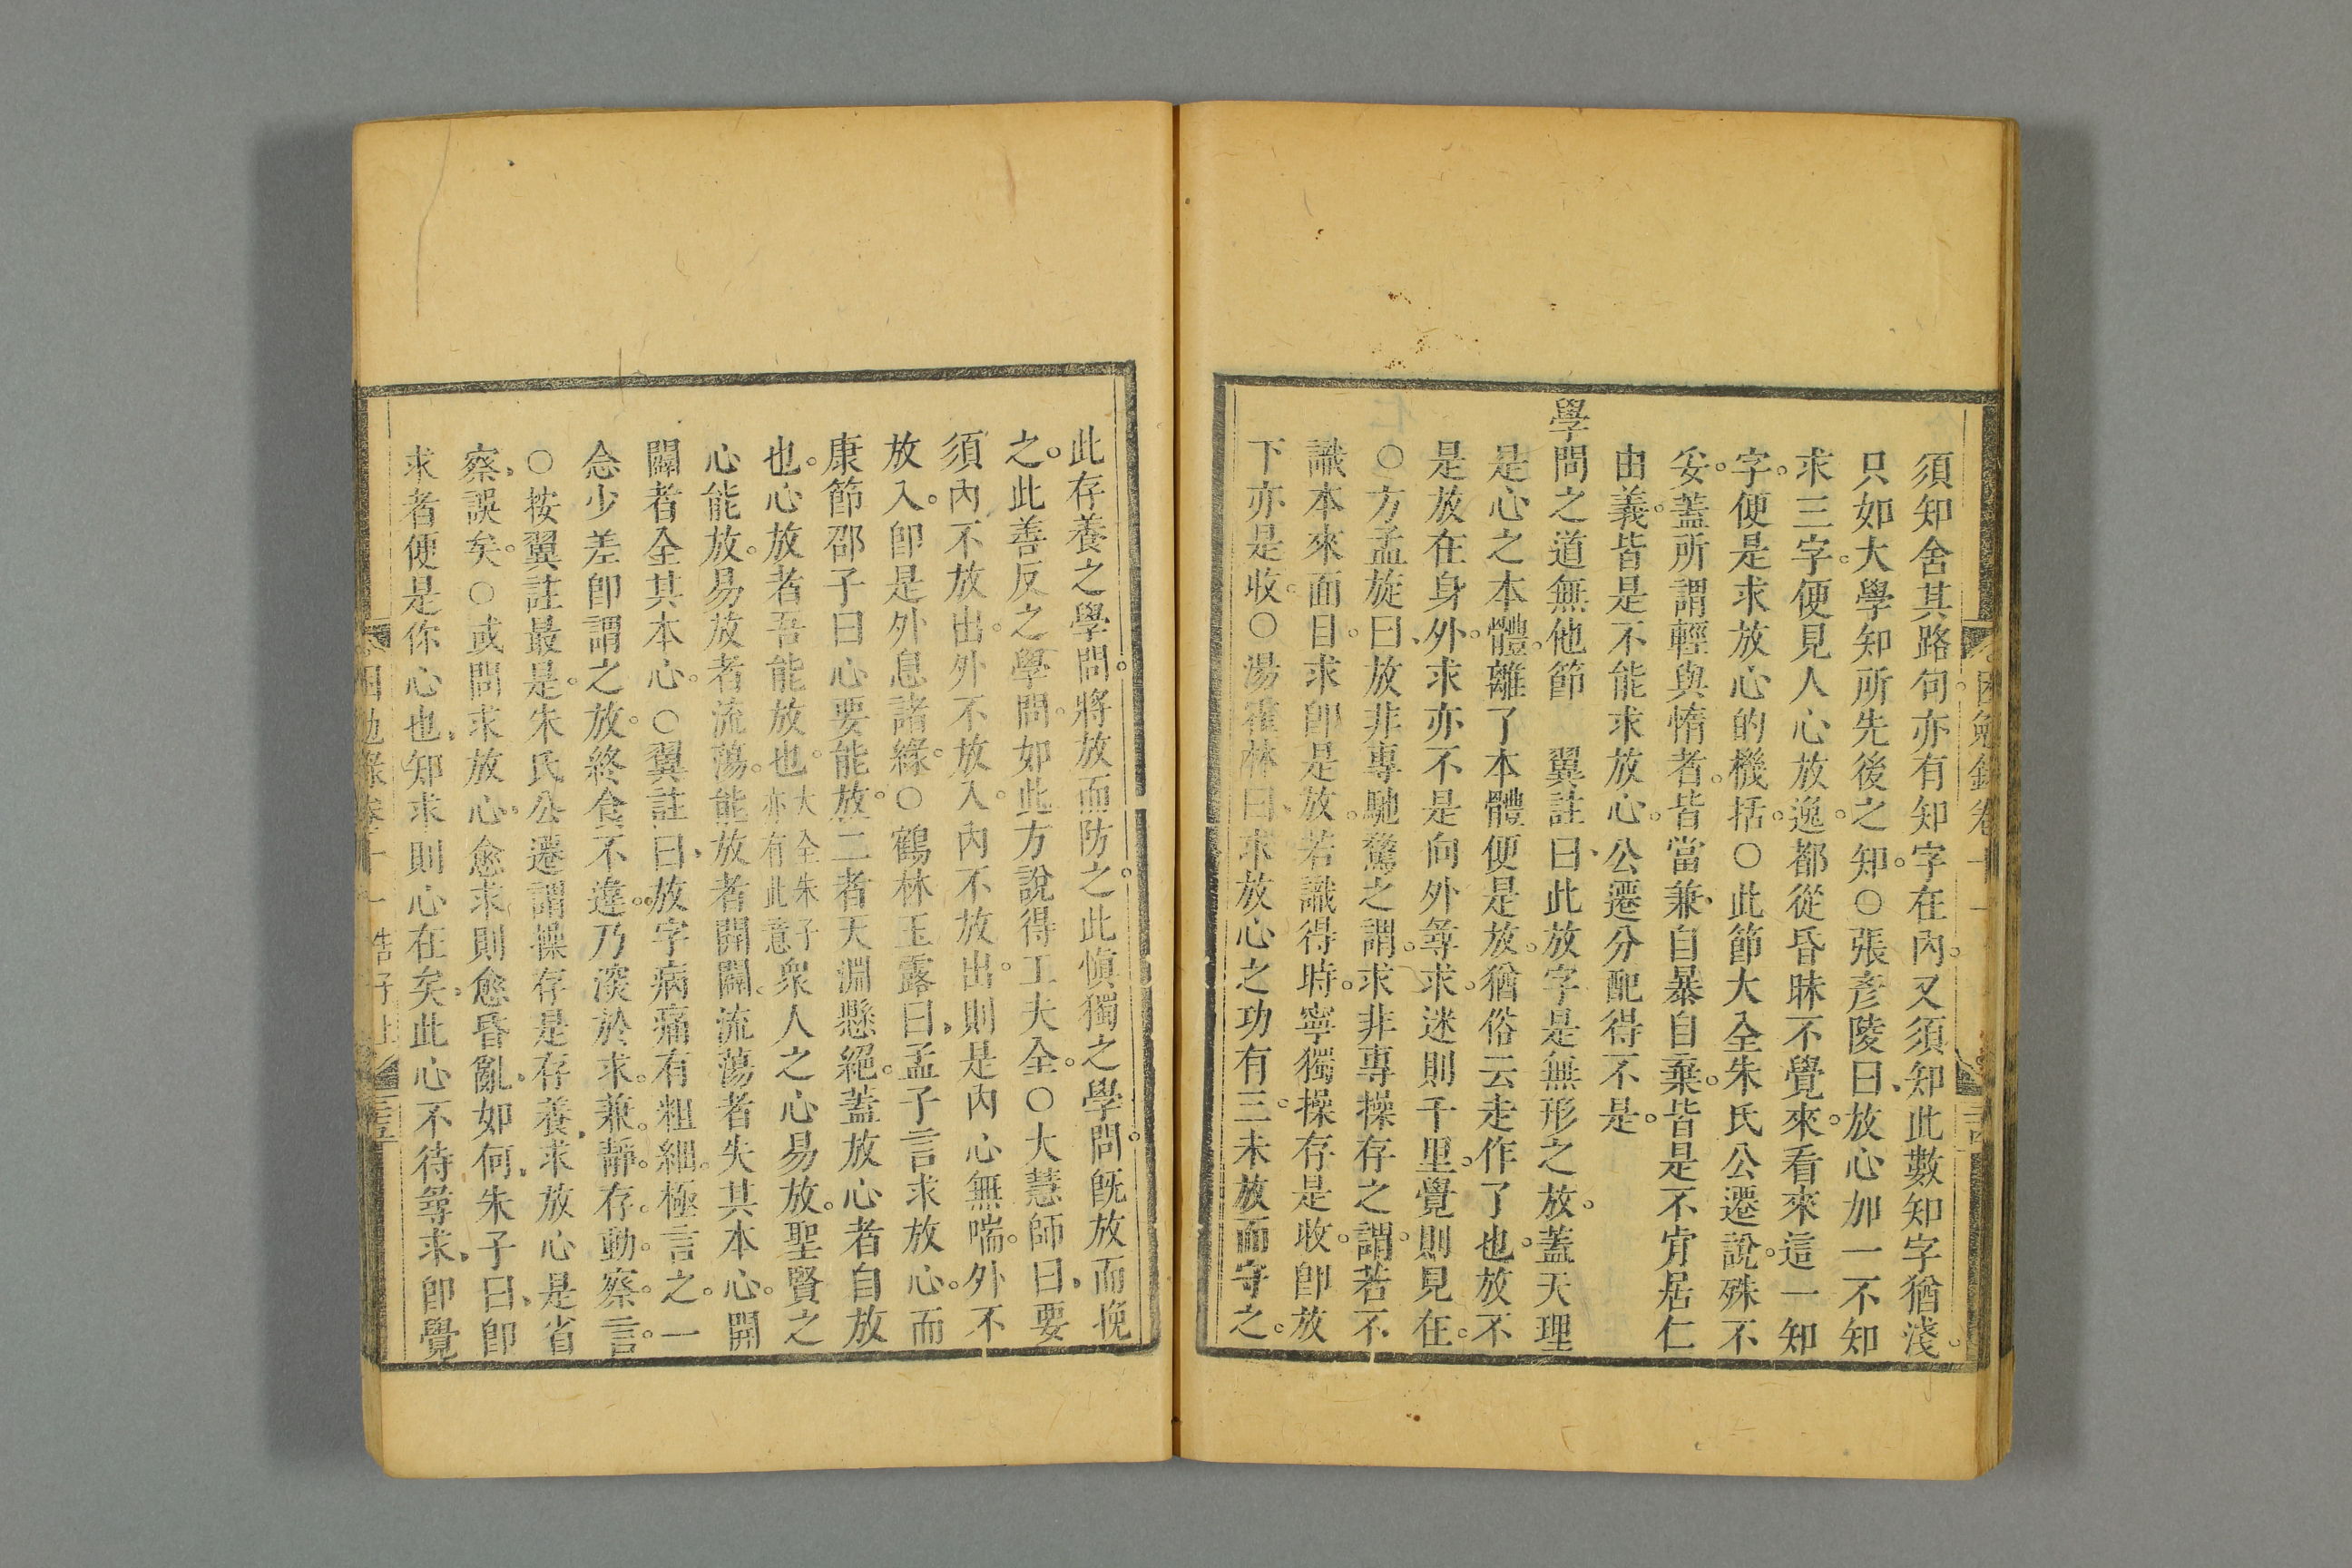 須知舍其路句亦有知字在內又須知此數知字猶淺
只如大學知所先後之知○張彥陵曰放心加一不知
求三字便見人心放逸都從昏昧不覺來看來這一知
字便是求放心的機括○此節大全朱氏公遷說殊不
妥蓋所謂輕與惰者皆當兼自暴自棄皆是不肯居仁
由義皆是不能求放心公遷分配得不是
學問之道無他節　翼註曰此放字是無形之放蓋天理
是心之本體離了本體便是放猶俗云走作了也放不
是放在身外求亦不是向外尋求迷則千里覺則見在
○方孟旋曰放非專馳騖之謂求非專操存之謂若不
識本來面目求卽是放若識得時寧獨操存是收卽放
下亦是收○湯霍林曰求放心之功有三未放而守之
此存養之學問將放而防之此愼獨之學問旣放而挽
之此善反之學問如此方說得工夫全○大慧師曰要
須內不放出外不放入內不放出則是內心無喘外不
放入卽是外息諸緣○鶴林玉露曰孟子言求放心而
康節邵子曰心要能放二者天淵懸絕蓋放心者自放
也心放者吾能放也大全朱子亦有此意眾人之心易放聖賢之
心能放易放者流蕩能放者開闢流蕩者失其本心開
闢者全其本心○翼註曰放字病痛有粗細極言之一
念少差卽謂之放終食不違乃深於求兼靜存動察言
○按翼註最是朱氏公遷謂操存是存養求放心是省
察誤矣○或問求放心愈求則愈昏亂如何朱子曰卽
求者便是你心也知求則心在矣此心不待尋求卽覺